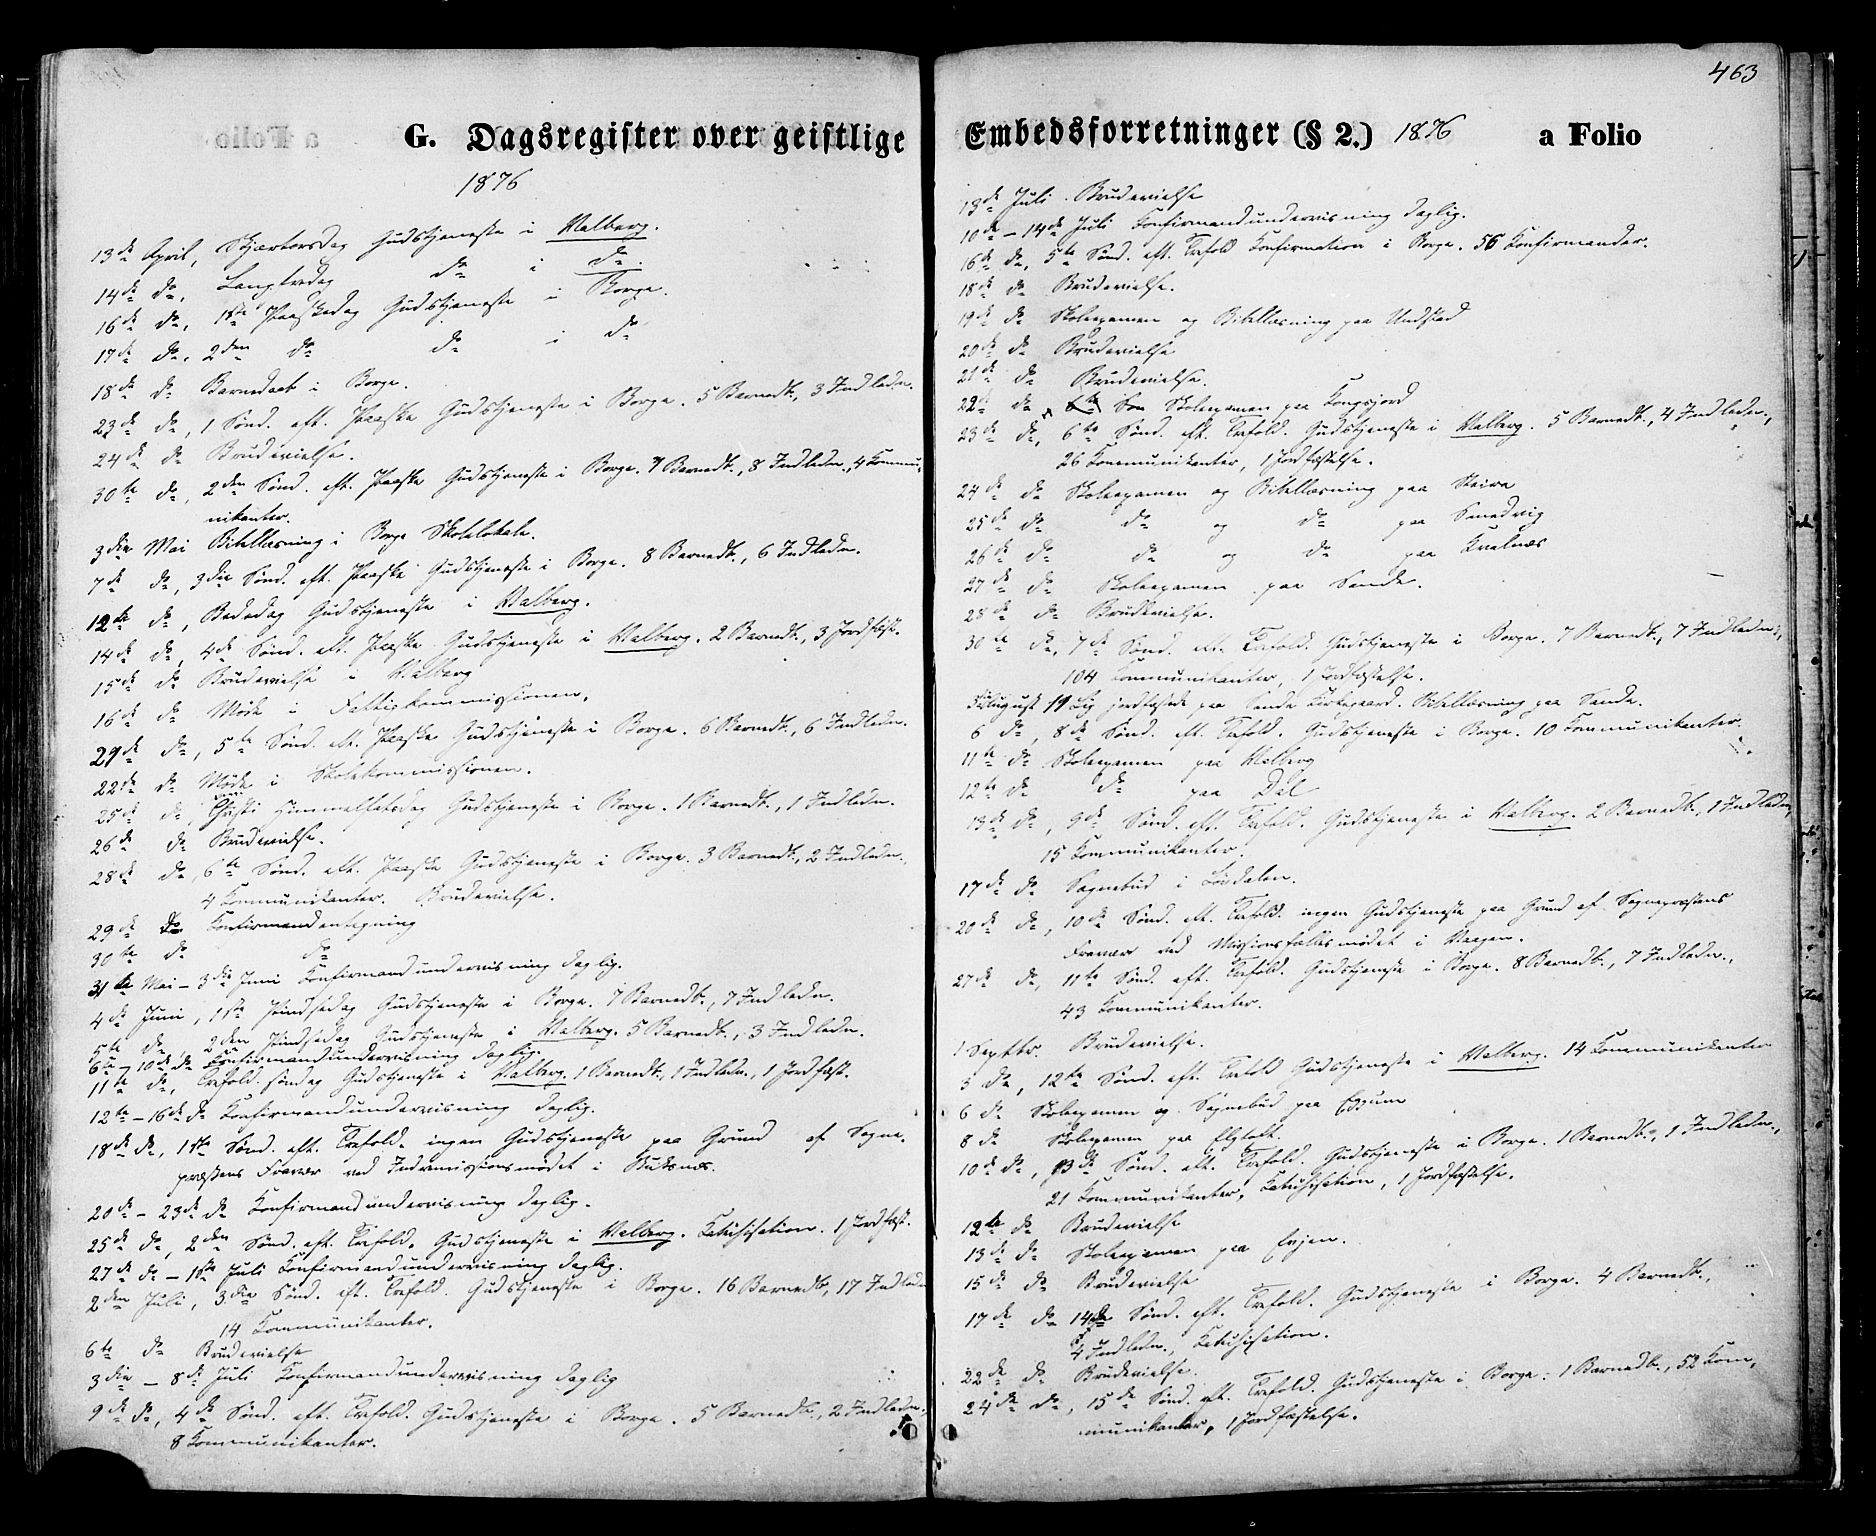 G. Dagsregister over geistlige
1876
13de April, Skjærtorsdag Gudstjeneste i Valberg.
14de do, Langfredag do i do.
16de do, 1ste Paaskedag Gudstjeneste i Borge.
17de do, 2den do do i do
18de do Barnedaab i Borge.
23de do, 1 Sønd. eft. Paaske Gudstjeneste i Borge. 5 Barnedb., 3 Indledn.
24de do Brudevielse.
30te do, 2den Sønd. eft. Paaske Gudstjeneste i Borge. 7 Barnedb., 8 Indledn., 4 Kommu-
nikanter.
3die Mai Bibellæsning i Borge Skolelokale.
7de do, 3die Sønd. eft. Paaske Gudstjeneste i Borge. 8 Barnedb., 6 Indledn.
12te do, Bededag Gudstjeneste i Valberg.
14de do, 4de Sønd. eft. Paaske Gudstjeneste i Valberg. 2 Barnedb., 3 Jordfæst.
15de do Brudevielse i Valberg
16de do Møde i Fattigkommissionen.
21de do, 5te Sønd. eft. Paaske Gudstjeneste i Borge. 6 Barnedb., 6 Indledn.
22de do Møde i Skolekommissionen.
25de do, Christi Himmelfartsdag Gudstjeneste i Borge. 1 Barnedb., 1 Indledn.
26de do Brudevielse.
28de do, 6te Sønd. eft. Paaske Gudstjeneste i Borge. 3 Barnedb., 2 Indledn.
4 Kommunikanter. Brudevielse.
29de do Konfirmandantegning
30te do do
31te Mai - 3die Juni Konfirmandundervisning daglig.
4de Juni, 1ste Pindsedag Gudstjeneste i Borge. 7 Barnedb., 7 Indledn.
5te do, 2den Pindsedag Gudstjeneste i Valberg. 5 Barnedb., 3 Indledn.
6te - 10de do Konfirmandundervisning daglig.
11te do, Trefold. søndag Gudstjeneste i Valberg. 1 Barnedb., 1 Indledn., 1 Jordfæst.
12te - 16de do Konfirmandundervisning daglig.
18de do, 1ste Sønd. eft. Trefold. ingen Gudstjeneste paa Grund af Sogne-
præstens Fravær ved Indremissionsmødet i Buksnæs.
20de - 23de do Konfirmandundervisning daglig.
25de do, 2den Sønd. eft. Trefold. Gudstjeneste i Valberg. Katechisation. 1 Jordfæst.
27de do - 1ste Juli Konfirmandundervisning daglig.
2den Juli, 3die Sønd. eft. Trefold. Gudstjeneste i Borge. 16 Barnedb., 17 Indledn
14 Kommunikanter.
6te do Brudevielse
3die - 8de Juli Konfirmandundervisning daglig
9de do, 4de Sønd. eft. Trefold. Gudstjeneste i Borge. 5 Barnedb., 2 Indledn.
8 Kommunikanter.
463
Embedsforretninger (§ 2.) 1876 a Folio
13de Juli. Brudevielse
10de - 14de Juli Konfirmandundervisning daglig.
16de do, 5te Sønd. eft. Trefold Konfirmation i Borge. 56 Konfirmander.
18de do Brudevielse.
19de do Skoleexamen og Bibellæsning paa Undstad
20de do Brudevielse
21de do Brudevielse.
22de do Skoleexamen paa Kongsjord
23de do, 6te Sønd. eft. Trefold. Gudstjeneste i Valberg. 5 Barnedb., 4 Indledn.,
26 Kommunikanter, 1 Jordfæstelse.
24de do Skoleexamen og Bibellæsning paa Steira
25de do do og do paa Smedvig
26de do do og do paa Kvalnæs
27de do Skoleexamen paa Sande.
28de do Brudevielse.
30te do, 7de Sønd. eft. Trefold. Gudstjeneste i Borge. 7 Barnedb., 7 Indledn.,
104 Kommunikanter, 1 Jordfæstelse.
August Lig jordfæstede paa Sande Kirkegaard. Bibellæsning paa Sande.
6 do, 8de Sønd. eft. Trefold. Gudstjeneste i Borge. 10 Kommunikanter.
11te do Skoleexamen paa Valberg
12te do do paa Dal
13de do, 9de Sønd. eft. Trefold. Gudstjeneste i Valberg. 2 Barnedb., 1 Indledn.,
15 Kommunikanter.
17de do Sognebud i
20de do, 10de Sønd. eft. Trefold. ingen Gudstjeneste paa Grund af Sognepræstens
Fravær ved Missionsfællesmødet i Vaagen.
27de do, 11te Sønd. eft. Trefold. Gudstjeneste i Borge. 8 Barnedb., 7 Indledn.,
43 Kommunikanter.
1 Septbr. Brudevielse.
3 do, 12te Sønd. eft. Trefold Gudstjeneste i Valberg. 14 Kommunikanter
6 do Skoleexamen og Sognebud paa Eggum
8 do Skoleexamen paa Elgtoft.
10de do, 13de Sønd. eft. Trefold. Gudstjeneste i Borge. 1 Barnedb., 1 Indledn.,
21 Kommunikanter, Katechisation, 1 Jordfæstelse.
12te do Brudevielse
13de do Skoleexamen paa Evjen.
15de do Brudevielse
17de do 14de Sønd. eft. Trefold. Gudstjeneste i Borge. 4 Barnedb.,
4 Indledn., Katechisation.
22de do Brudevielse.
24de do, 15de Sønd. eft. Trefold. Gudstjeneste i Borge: 1 Barnedb., 52 Kom-
munikanter, 1 Jordfæstelse.